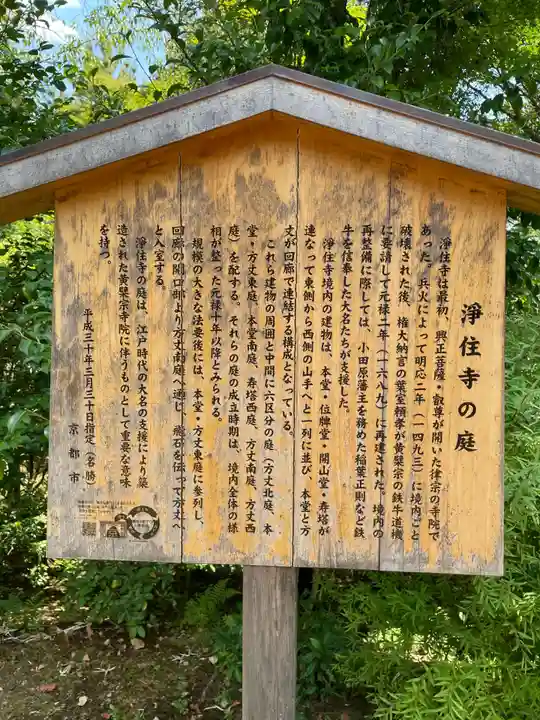 淨住寺の庭
淨住寺は最初、興正菩薩・叡尊が開いた律宗の寺院で
あった。兵火によって明応二年(一四九三)に境内ごと
破壊された後、権大納言の葉室頼孝が黄檗宗の鉄牛道機
に要請して元禄二年(一六八九)に再建された。境内の
再整備に際しては、小田原藩主を務めた稲葉正則など鉄
牛を信奉した大名たちが支援した。
淨住寺境内の建物は、本堂・位牌堂・開山堂・寿塔が
連なって東側から西側の山手へと一列に並び、本堂と方
丈が回廊で連結する構成となっている。
これら建物の周囲と中間に六区分の庭(方丈北庭、本
堂・方丈東庭、本堂南庭、寿塔西庭、方丈南庭、方丈西
庭)を配する。それらの庭の成立時期は、境内全体の様
相が整った元禄十年以降とみられる。
規模の大きな法要後には、本堂・方丈東庭に参列し、
回廊の開口部より方丈南庭へ通じ、飛石を伝って方丈へ
と入室する。
淨住寺の庭は、江戸時代の大名の支援により築
造された黄檗宗寺院に伴うものとして重要な意味
を持つ。
平成三十年三月三十日指定(名勝)
京都市